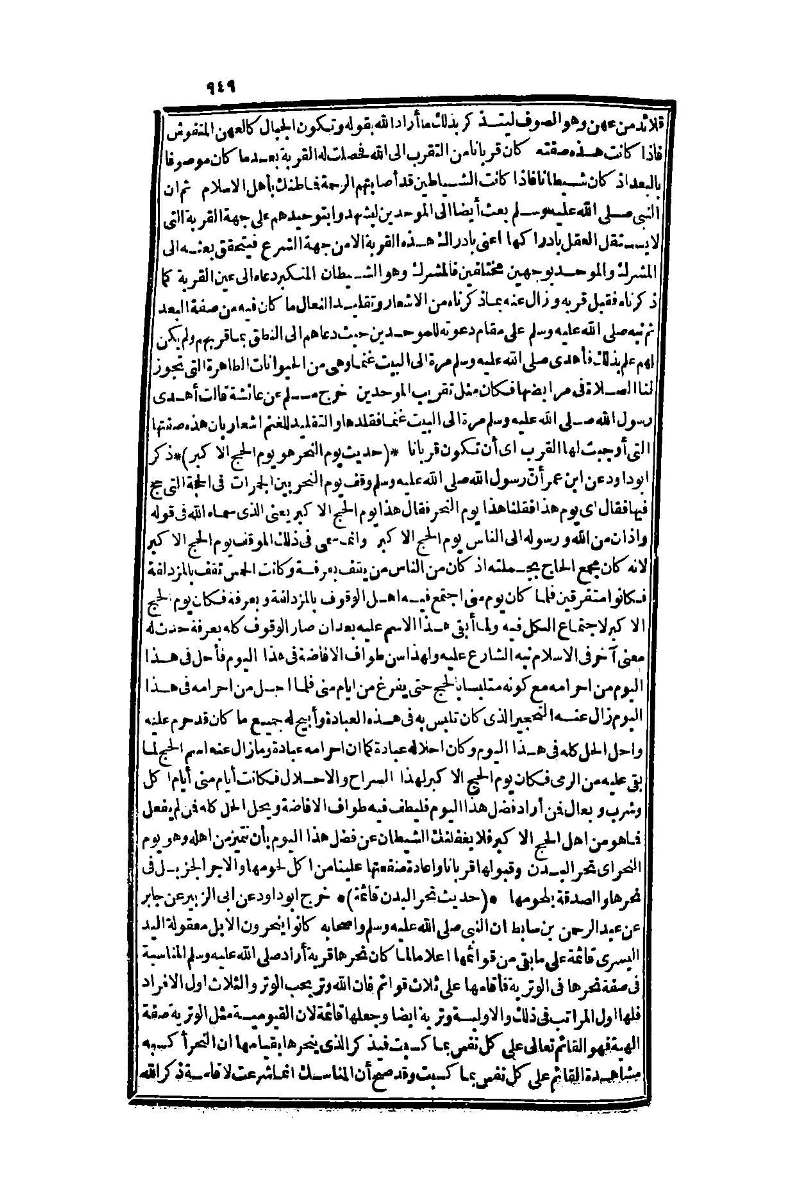 ٩٤٩
قلائد من عهن وهو الصوف ليتذكر بذلك ما أراد الله بقوله وتكون الجبال كالعهن المنفوش
فاذا كانت هذه صفته كان قربانا من التقرب الى الله فحصلت له القربة بعد ما كان موصوفا
بالبعد اذ كان شيطانا فاذا كانت الشياطين قد أصابتهم الرحمة فاظنك بأهل الاسلام ثم ان
النبي صلى الله عليه وسلم بعث أيضا الى الموحدين ليشهدوا بتوحيدهم على جهة القربة التي
لا يستقل العقل بادراكها اعنى بادراك هذه القربة الا من جهة الشرع فيتحقق بعثه الى
المشرك والموحد بوجهين مختلفين فالمشرك وهو الشيطان المتكبر دعاه الى عين القربة كما
ذكرناه فقبل قربه وزال عنه بما ذكرناه من الاشعار وتقليد النعال ما كان فيه من صفة البعد
ثم نبه صلى الله عليه وسلم على مقام دعوته للموحدين حيث دعاهم الى النطق بما قربهم ولم يكن
لهم علم بذلك فأهدى صلى الله عليه وسلم مرة الى البيت غنما وهي من الحيوانات الطاهرة التي تجوز
لنا الصلاة في مرابضها فكان مثل تقريب الموحدين خرج مسلم عن عائشة قالت أهدى
رسول الله صلى الله عليه وسلم مرة الى البيت غنما فقلدها والتقليد للغنم اشعار بان هذه صفتها
التي أوجبت لها القرب اى أن تكون قربانا *(حديث يوم النحر هو يوم الحج الاكبر)* ذكر
ابو داود عن ابن عمر أن رسول الله صلى الله عليه وسلم وقف يوم النحر بين الجمرات فى الحجة التى حج
فيها فقال اى يوم هذا فقلنا هذا يوم النحر فقال هذا يوم الحج الاكبر يعنى الذى سماه الله فى قوله
واذان من الله ورسوله الى الناس يوم الحج الاكبر وانما سمى فى ذلك الموقف يوم الحج الاكبر
لانه كان مجمع الحاج بجملته اذ كان من الناس من يقف بعرفة وكانت الحمس تقف بالمزدلفة
فكانوا متفرقين فلما كان يوم منى اجتمع فيه اهل الوقوف بالمزدلفة وبعرفة فكان يوم الحج
الاكبر لاجتماع الكل فيه ولما أبقى هذا الاسم عليه بعد ان صار الوقوف كله بعرفة حدث له
معنى آخر فى الاسلام نبه الشارع عليه ولهذا سن طواف الافاضة فى هذا اليوم فأحل فى هذا
اليوم من احرامه مع كونه متلبسا بالحج حتى يفرغ من ايام منى فلما احل من احرامه فى هذا
اليوم زال عنه التحجير الذى كان تلبس به فى هذه العبادة وأبيح له جميع ما كان قد حرم عليه
واحل الحل كله فى هذا اليوم وكان احلاله عبادة كما ان احرامه عبادة وما زال عنه اسم الحج لما
بقى عليه من الرمى فكان يوم الحج الاكبر لهذا السراح والاحلال فكانت أيام منى أيام اكل
وشرب وبعال فمن أراد فضل هذا اليوم فليطف فيه طواف الافاضة ويحل الحل كله فمن لم يفعل
فما هو من اهل الحج الاكبر فلا يغفلنك الشيطان عن فضل هذا اليوم بأن تتميز من اهله وهو يوم
النحر اى نحر البدن وقبولها قربانا واعادة منفعتها علينا من اكل لحومها والاجر الجزيل فى
نحرها والصدقة بلحومها *(حديث نحر البدن قائمة)* خرج ابو داود عن ابى الزبير عن جابر
عن عبد الرحمن بن سابط ان النبي صلى الله عليه وسلم واصحابه كانوا ينحرون الابل معقولة اليد
اليسرى قائمة على ما بقى من قوائمها اعلاما لما كان نحرها قربة أراد صلى الله عليه وسلم المناسبة
فى صفة نحرها فى الوترية فأقامها على ثلاث قوائم فان الله وتر يحب الوتر والثلاث اول الافراد
فلها اول المراتب فى ذلك والاولية وترية ايضا وجعلها قائمة لان القيومية مثل الوترية صفة
الهية فهو القائم تعالى على كل نفس بما كسبت فيذكر الذى ينحرها بقيامها ان النحر اكسبه
مشاهدة القائم على كل نفس بما كسبت وقد صح أن المناسك انما شرعت لاقامة ذكر الله